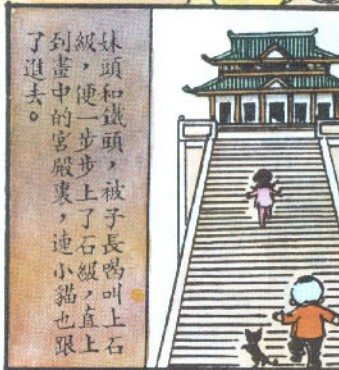 妹頭和鐵頭，被子長喝叫上石
級，便一步步上了石級，直上
到畫中的宮殿裏，連小貓也跟
了進去。